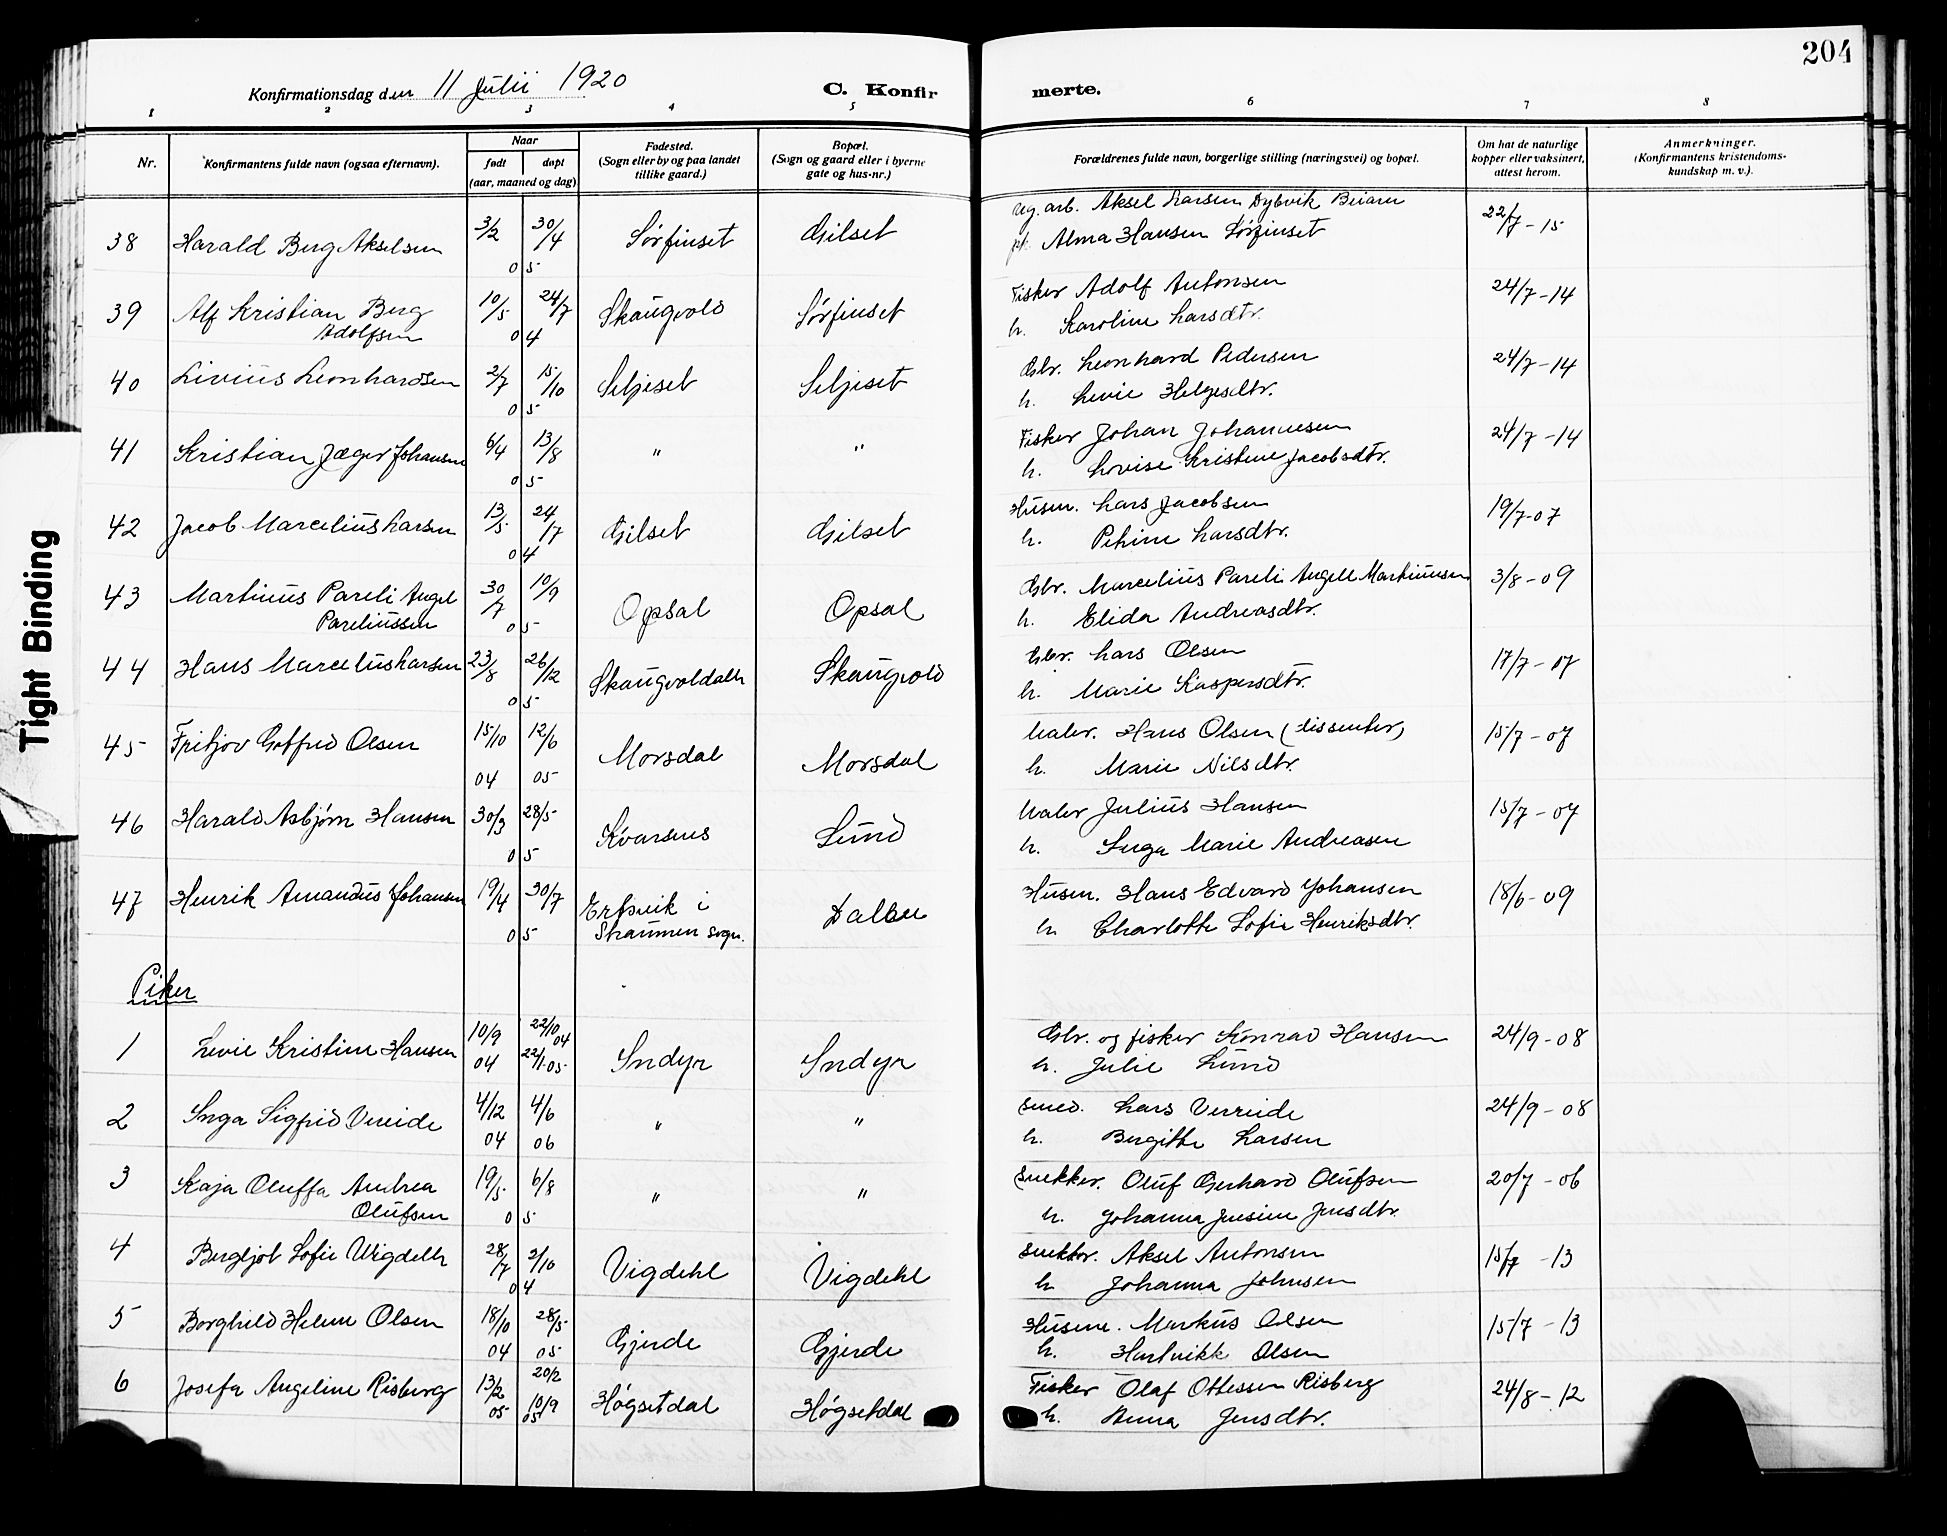 204
Konfirmationsdag den 11 Julii 1920
C. Konfirmerte.
1 2 3 4 5 6 7 8
Nr.
Konfirmantens fulde navn (ogsaa efternavn).
Naar
født døpt
(aar, maaned og dag)
Fødested.
(Sogn eller by og paa landet
tillike gaard.)
Bopæl.
(Sogn og gaard eller i byerne
gate og hus-nr.)
Forældrenes fulde navn, borgerlige stilling (næringsvei) og bopæl.
Om hat de naturlige
kopper eller vaksinert,
attest herom.
Anmerkninger.
(Konfirmantens kristendoms-
kundskap m. v.).
38 Harald Berg Akselsen 3/2 30/4 05 Sørfinset Gilset
ug. arb. Aksel Larsen Dybvik Beiarn
Alma Hansen Sørfinset
22/7 - 15
39 Alf Kristian Berg
Adolfsen
10/5 24/7 04 Skaugvold Sørfinset
Fisker Adolf Antonsen
h. Karoline Larsdtr.
24/7 - 14
40 Livius Leonhardsen 2/7 15/10 05 Seljeset Seljeset
Gbr. Leonhard Pedersen
h. Levie Helgesdtr.
24/7 - 14
41 Kristian Jæger Johansen 6/4 13/8 05 " "
Fisker Johan Johannesen
h. Lovise Kristine Jacobsdtr.
24/7 - 14
42 Jacob Marcelius Larsen 13/5 24/7 04 Gilset Gilset
Husm. Lars Jacobsen
h. Petrine Larsdtr.
19/7-07
43 Martinus Pareli Angel
Pareliussen
30/7 10/9 05 Opsal Opsal
Gbr. Marcelius Pareli Angell Martinusen
h. Elida Andreasdtr.
3/8 - 09
44 Hans Marcelius Larsen 23/8 26/12 05 Skaugvoldalen Skaugvold
Gbr. Lars Olsen
h. Marie Kaspersdtr.
17/7 - 07
45 Fritjov Gotfred Olsen 15/10 04 12/6 05 Morsdal Morsdal
Maler. Hans Olsen (dissenter)
h. Marie Nilsdtr.
15/7 - 07
46 Harald Asbjørn Hansen 30/3 28/5 05 Kvarsnes Sund
Maler Julius Hansen
h. Inga Marie Andreasen
15/7 - 07
47 Henrik Amandus Johansen 19/4 30/7 05 Ertsvik i
Straumen sogn.
Dalen
Husm. Hans Edvard Johansen
h. Charlotte Sofie Henriksdtr.
18/6 - 09
Piker
1 Levie Kristine Hansen 10/9 04 22/10 04 22/1-05 Indyr Indyr
Gbr. og fisker Konrad Hansen
h. Julie Lund
24/9 - 08
2 Inga Sigfrid Vereide 4/12 04 4/6 06 " "
Smed. Lars Verreide
h. Bergitte Larsen
24/9 - 08
3 Kaja Oluffa Andrea
Olufsen
19/5 6/8 05 " "
Snekker. Oluf Gerhard Olufsen
h. Johanna Jensine Jensdtr.
20/7 - 06
4 Bergljot Sofie Wigdehl 28/7 2/10 04 Vigdehl Vigdehl
Snekker. Aksel Antonsen
h Johanna Johnsen
15/7 - 13
5 Borghild Helene Olsen 18/10 04 28/5 05 Gjerde Gjerde
Husm. Markus Olsen
h. Hartvikk Olsen
15/7 - 13
6 Josefa Angeline Risberg 13/2 05 20/2 10/9 05 Høgsetdal Høgsetdal
Fisker Olaf Ottessen Risberg
h. Anna Jensdtr.
24/8 - 12
Tight Binding